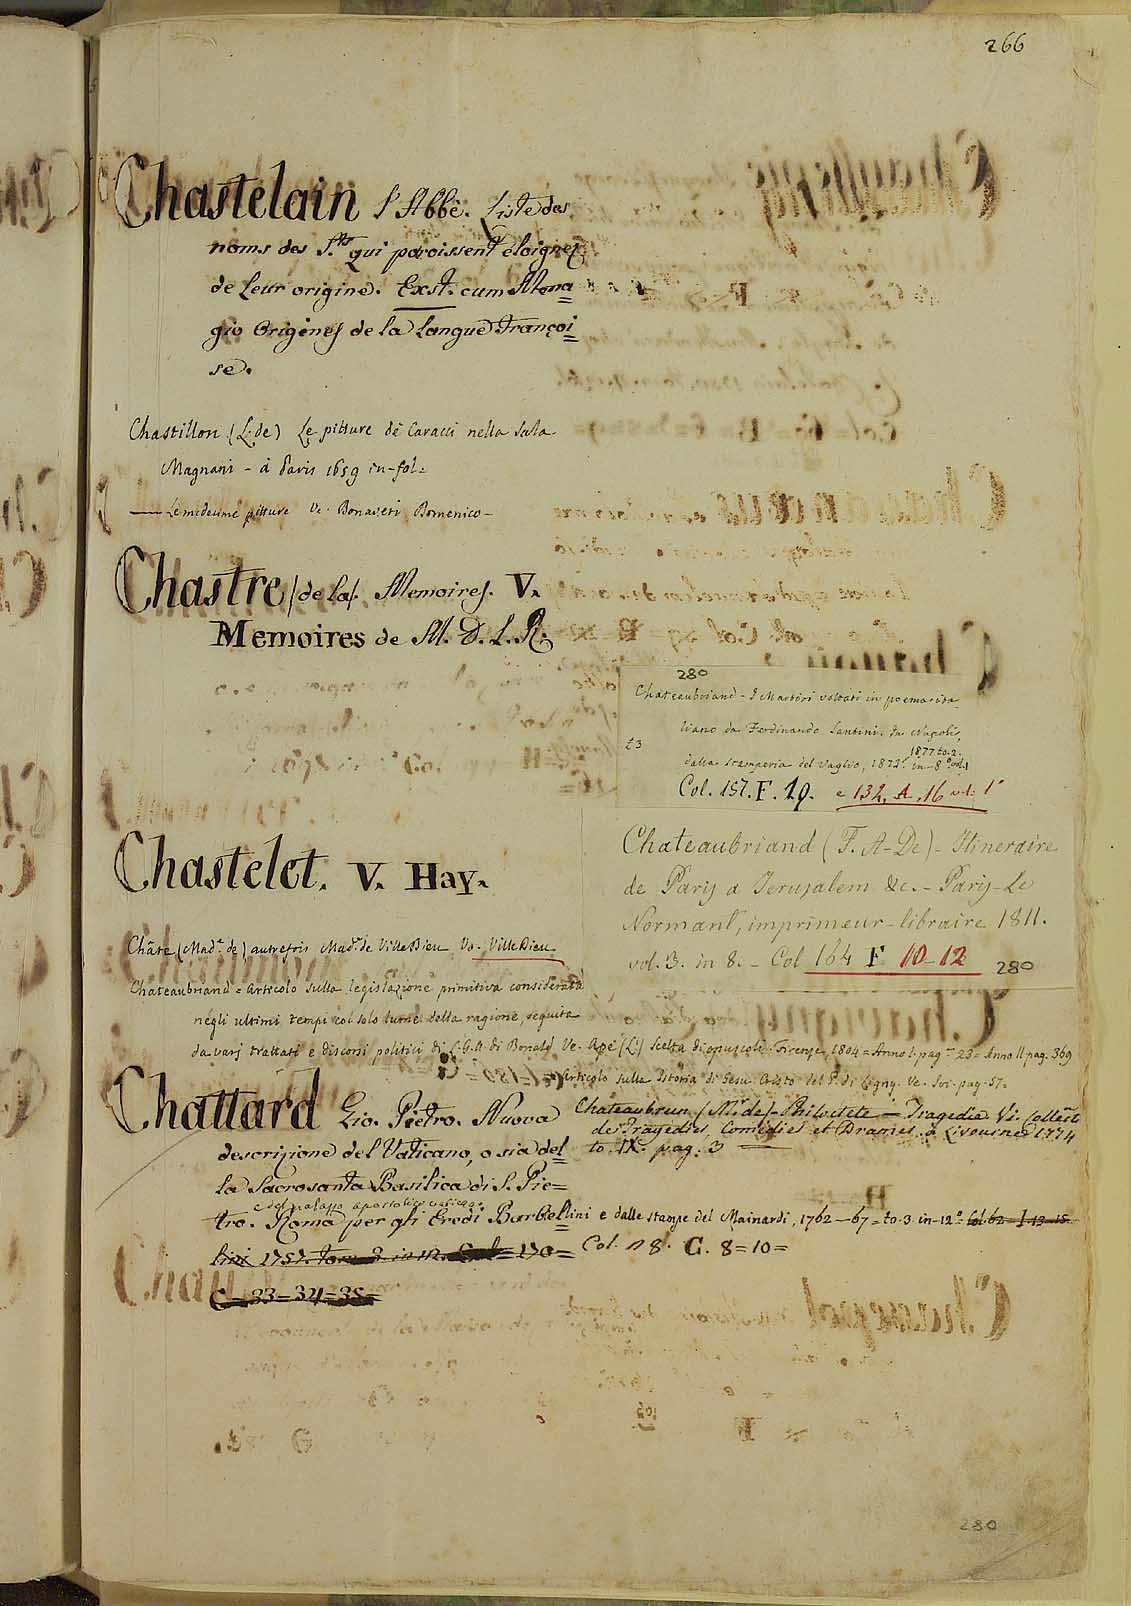 266
Chastelain l'Abbè. Liste des
noms des S.ts qui paroissent éloignez
de leur origine. Exst. cum Mena=
gio Origines de la Langue Françoi=
se.
Chastillon (L. de) Le pitture dè Caracci nella Sala
Magnani - à Paris 1659 in-fol=
— Le medesime pitture Ve. Bonaveri Domenico -
Chastre /de la/. Memoires. V.
Memoires de M. D. L. R.
280
Chateaubriand - I Martiri voltati in poema ita
liano da Ferdinando Santini. In Napoli,
t3
1877. to. 2.
dalla stamperia del Vaglio, 1873. in-8° vol. 1
Col. 157. F. 19. e 132. A. 16 vol. 1
Chastelet. V. Hay.
Chateaubriand (F. A-De) - Itineraire
de Paris a Jerusalem &c. - Paris - Le
Normant, imprimeur-libraire 1811.
vol. 3. in 8. - Col 164 F 10-12
280
Châte (Mad.e de) autrefois Mad.e de Ville Dieu Ve. Ville Dieu
Chateaubriand = Articolo sulla legislazione primitiva considerata
negli ultimi tempi col solo lume della ragione, seguita
da varj trattati e discorsi politici di L. G. A. di Bonald Ve. Ape (L') Scelta di opuscoli. Firenze, 1804 = Anno I. pag. 23 = Anno II pag. 369
= Articolo sulla Istoria di Gesu Cristo del P. di Ligny. Ve. Ivi. pag. 57.
Chattard Gio. Pietro. Nuova
descrizione del Vaticano, o sia del=
la Sacrosanta Basilica di S. Pie=
e del palazzo apostolico
tro. Roma per gli Eredi Barbellini e dalle stampe del Mainardi, 1762-67 = to. 3 in-12° Col. 62 = I 13-15
lini 1757. tom. 3 in 12. Col. = 170 =
Col. 118. G. 8=10=
C = 33=34=35=
Chateaubrun (M.r de) - Philoctete - Tragedia Ve. Collect
de Tragedies, Comedies et Drames. a Livourne 1774
to. IX. pag. 3
280